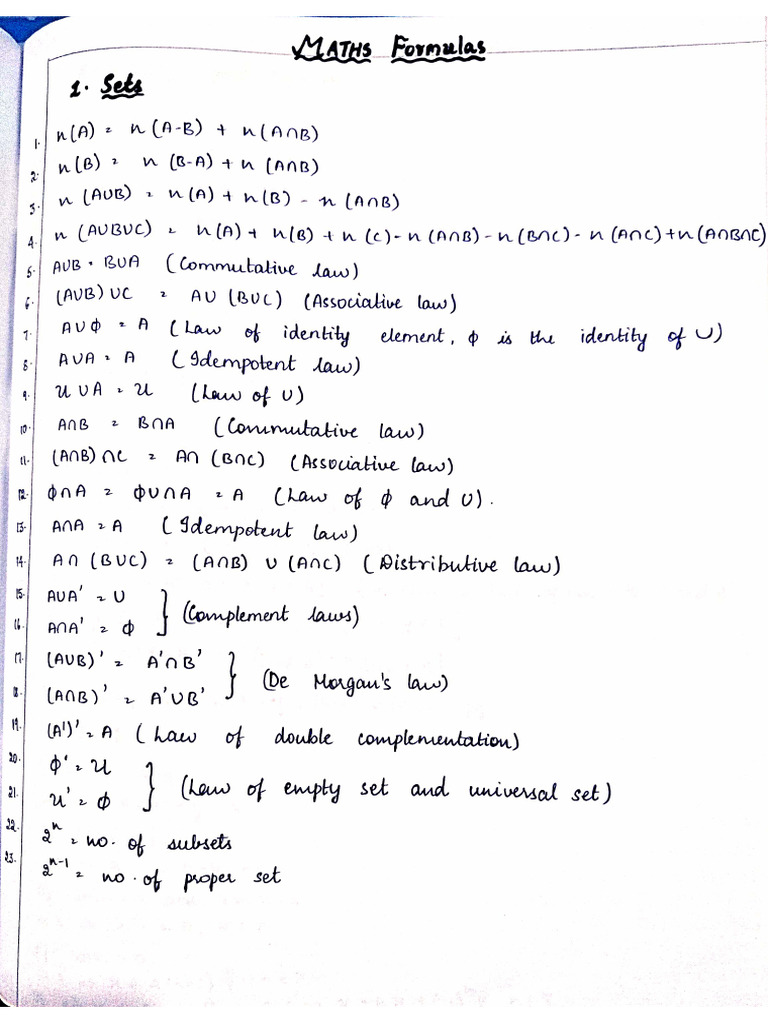 MATHS Formulas
1. Sets
1. n(A) = n(A-B) + n(A∩B)
2. n(B) = n(B-A) + n(A∩B)
3. n(A∪B) = n(A) + n(B) - n(A∩B)
4. n(A∪B∪C) = n(A) + n(B) + n(C) - n(A∩B) - n(B∩C) - n(A∩C) + n(A∩B∩C)
5. A∪B = B∪A (Commutative law)
6. (A∪B)∪C = A∪(B∪C) (Associative law)
7. A∪ϕ = A (Law of identity element, ϕ is the identity of ∪)
8. A∪A = A (Idempotent law)
9. U∪A = U (Law of U)
10. A∩B = B∩A (Commutative law)
11. (A∩B)∩C = A∩(B∩C) (Associative law)
12. ϕ∩A = ϕ∪∩A = A (Law of ϕ and U).
13. A∩A = A (Idempotent law)
14. A∩(B∪C) = (A∩B)∪(A∩C) (Distributive law)
15. A∪A' = U
} (Complement laws)
16. A∩A' = ϕ
17. (A∪B)' = A'∩B'
} (De Morgan's law)
18. (A∩B)' = A'∪B'
19. (A')' = A (Law of double complementation)
20. ϕ' = U
} (Law of empty set and universal set)
21. U' = ϕ
22. 2ⁿ = no. of subsets
23. 2ⁿ⁻¹ = no. of proper set